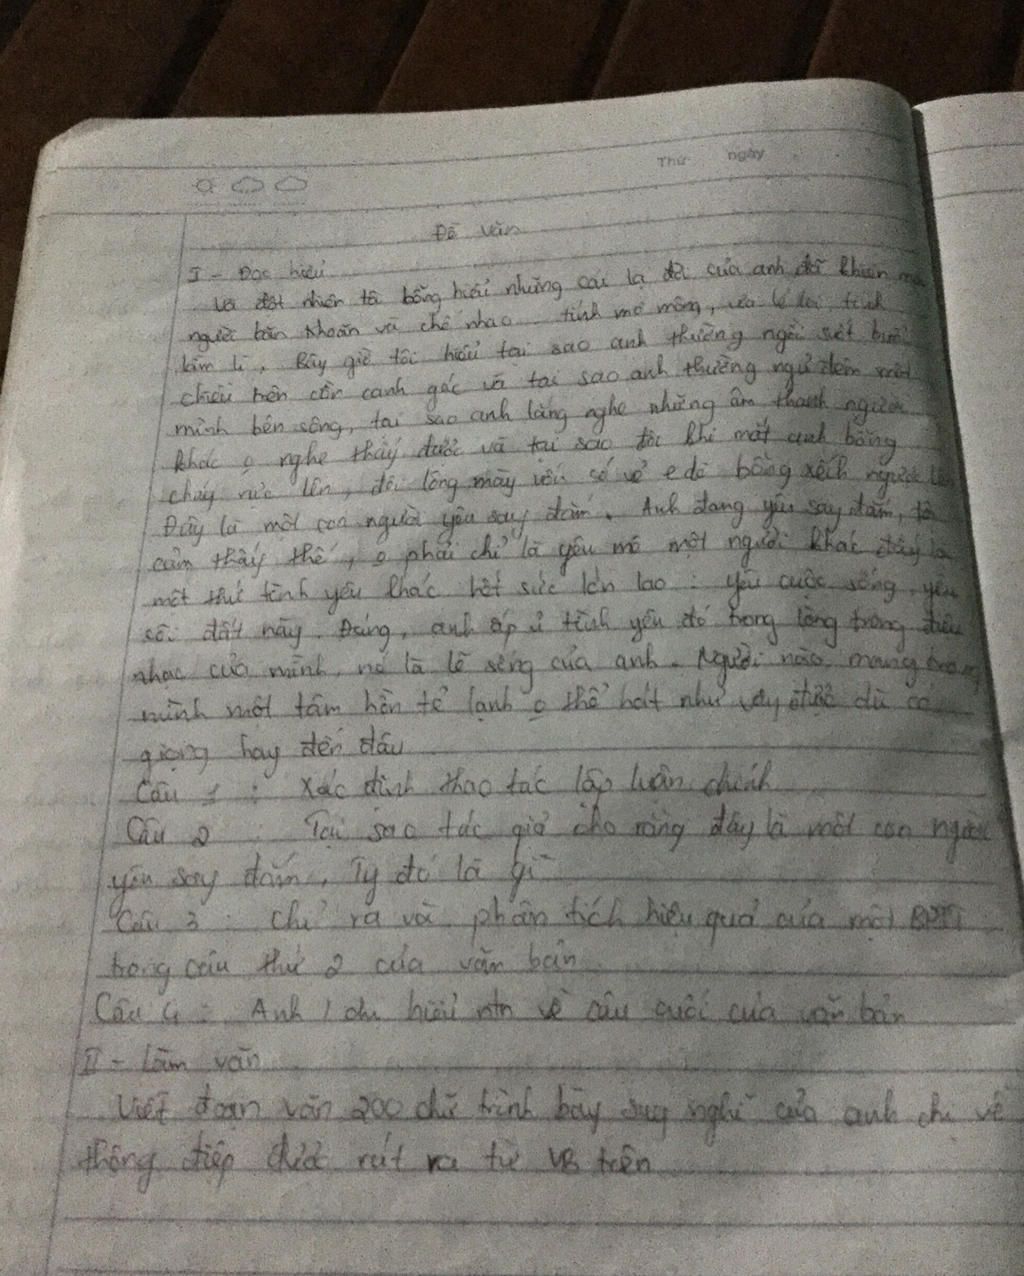 Thứ ngày
Đề văn
I - Đọc hiểu
Và đột nhiên tôi bỗng hiểu những cái lạ đời của anh đã khiến mọi
người băn khoăn và chế nhạo tính mơ mộng, vừa lẻ loi, tính
lầm lì. Bây giờ tôi hiểu tại sao anh thường ngồi suốt buổi
chiều trên cồn canh gác và tại sao anh thường ngủ đêm một
mình bên sông, tại sao anh lắng nghe những âm thanh người
khác o nghe thấy được và tại sao đôi khi mắt anh bỗng
cháy rực lên, đôi lông mày vốn có vẻ e dè bỗng xếch ngược lên
Đây là một con người yêu say đắm. Anh đang yêu say đắm, tôi
cảm thấy thế, o phải chỉ là yêu mô một người khác đây là
một thứ tình yêu khác hết sức lớn lao: yêu cuộc sống, yêu
cõi đất này. Đúng, anh ấp ủ tình yêu đó trong lòng trong điệu
nhạc của mình, nó là lẽ sống của anh. Người nào mang trong
mình một tâm hồn tẻ lạnh o thể hát như vậy được dù có
giọng hay đến đâu
Câu 1: Xác định thao tác lập luận chính
Câu 2: Tại sao tác giả cho rằng đây là một con người
yêu say đắm, Ty đó là gì
Câu 3: Chỉ ra và phân tích hiệu quả của một BPTT
trong câu thứ 2 của văn bản
Câu 4: Anh / chị hiểu ntn về câu cuối của văn bản
II - Làm văn
Viết đoạn văn 200 chữ trình bày suy nghĩ của anh chị về
thông điệp được rút ra từ VB trên